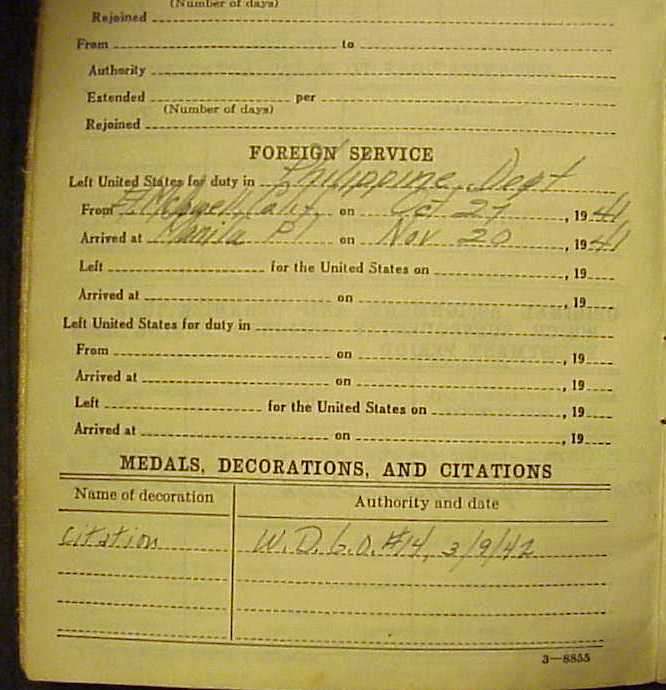 (Number of days)
Rejoined
From to
Authority
Extended per
(Number of days)
Rejoined
FOREIGN SERVICE
Left United States for duty in Philippine Dept
From Ft. McDowell, Calif. on Oct 27, 1941
Arrived at Manila P.I. on Nov 20, 1941
Left for the United States on , 19
Arrived at on , 19
Left United States for duty in
From on , 19
Arrived at on , 19
Left for the United States on , 19
Arrived at on , 19
MEDALS, DECORATIONS, AND CITATIONS
Name of decoration Authority and date
Citation W.D.G.O. #14, 3/9/42
3—8855